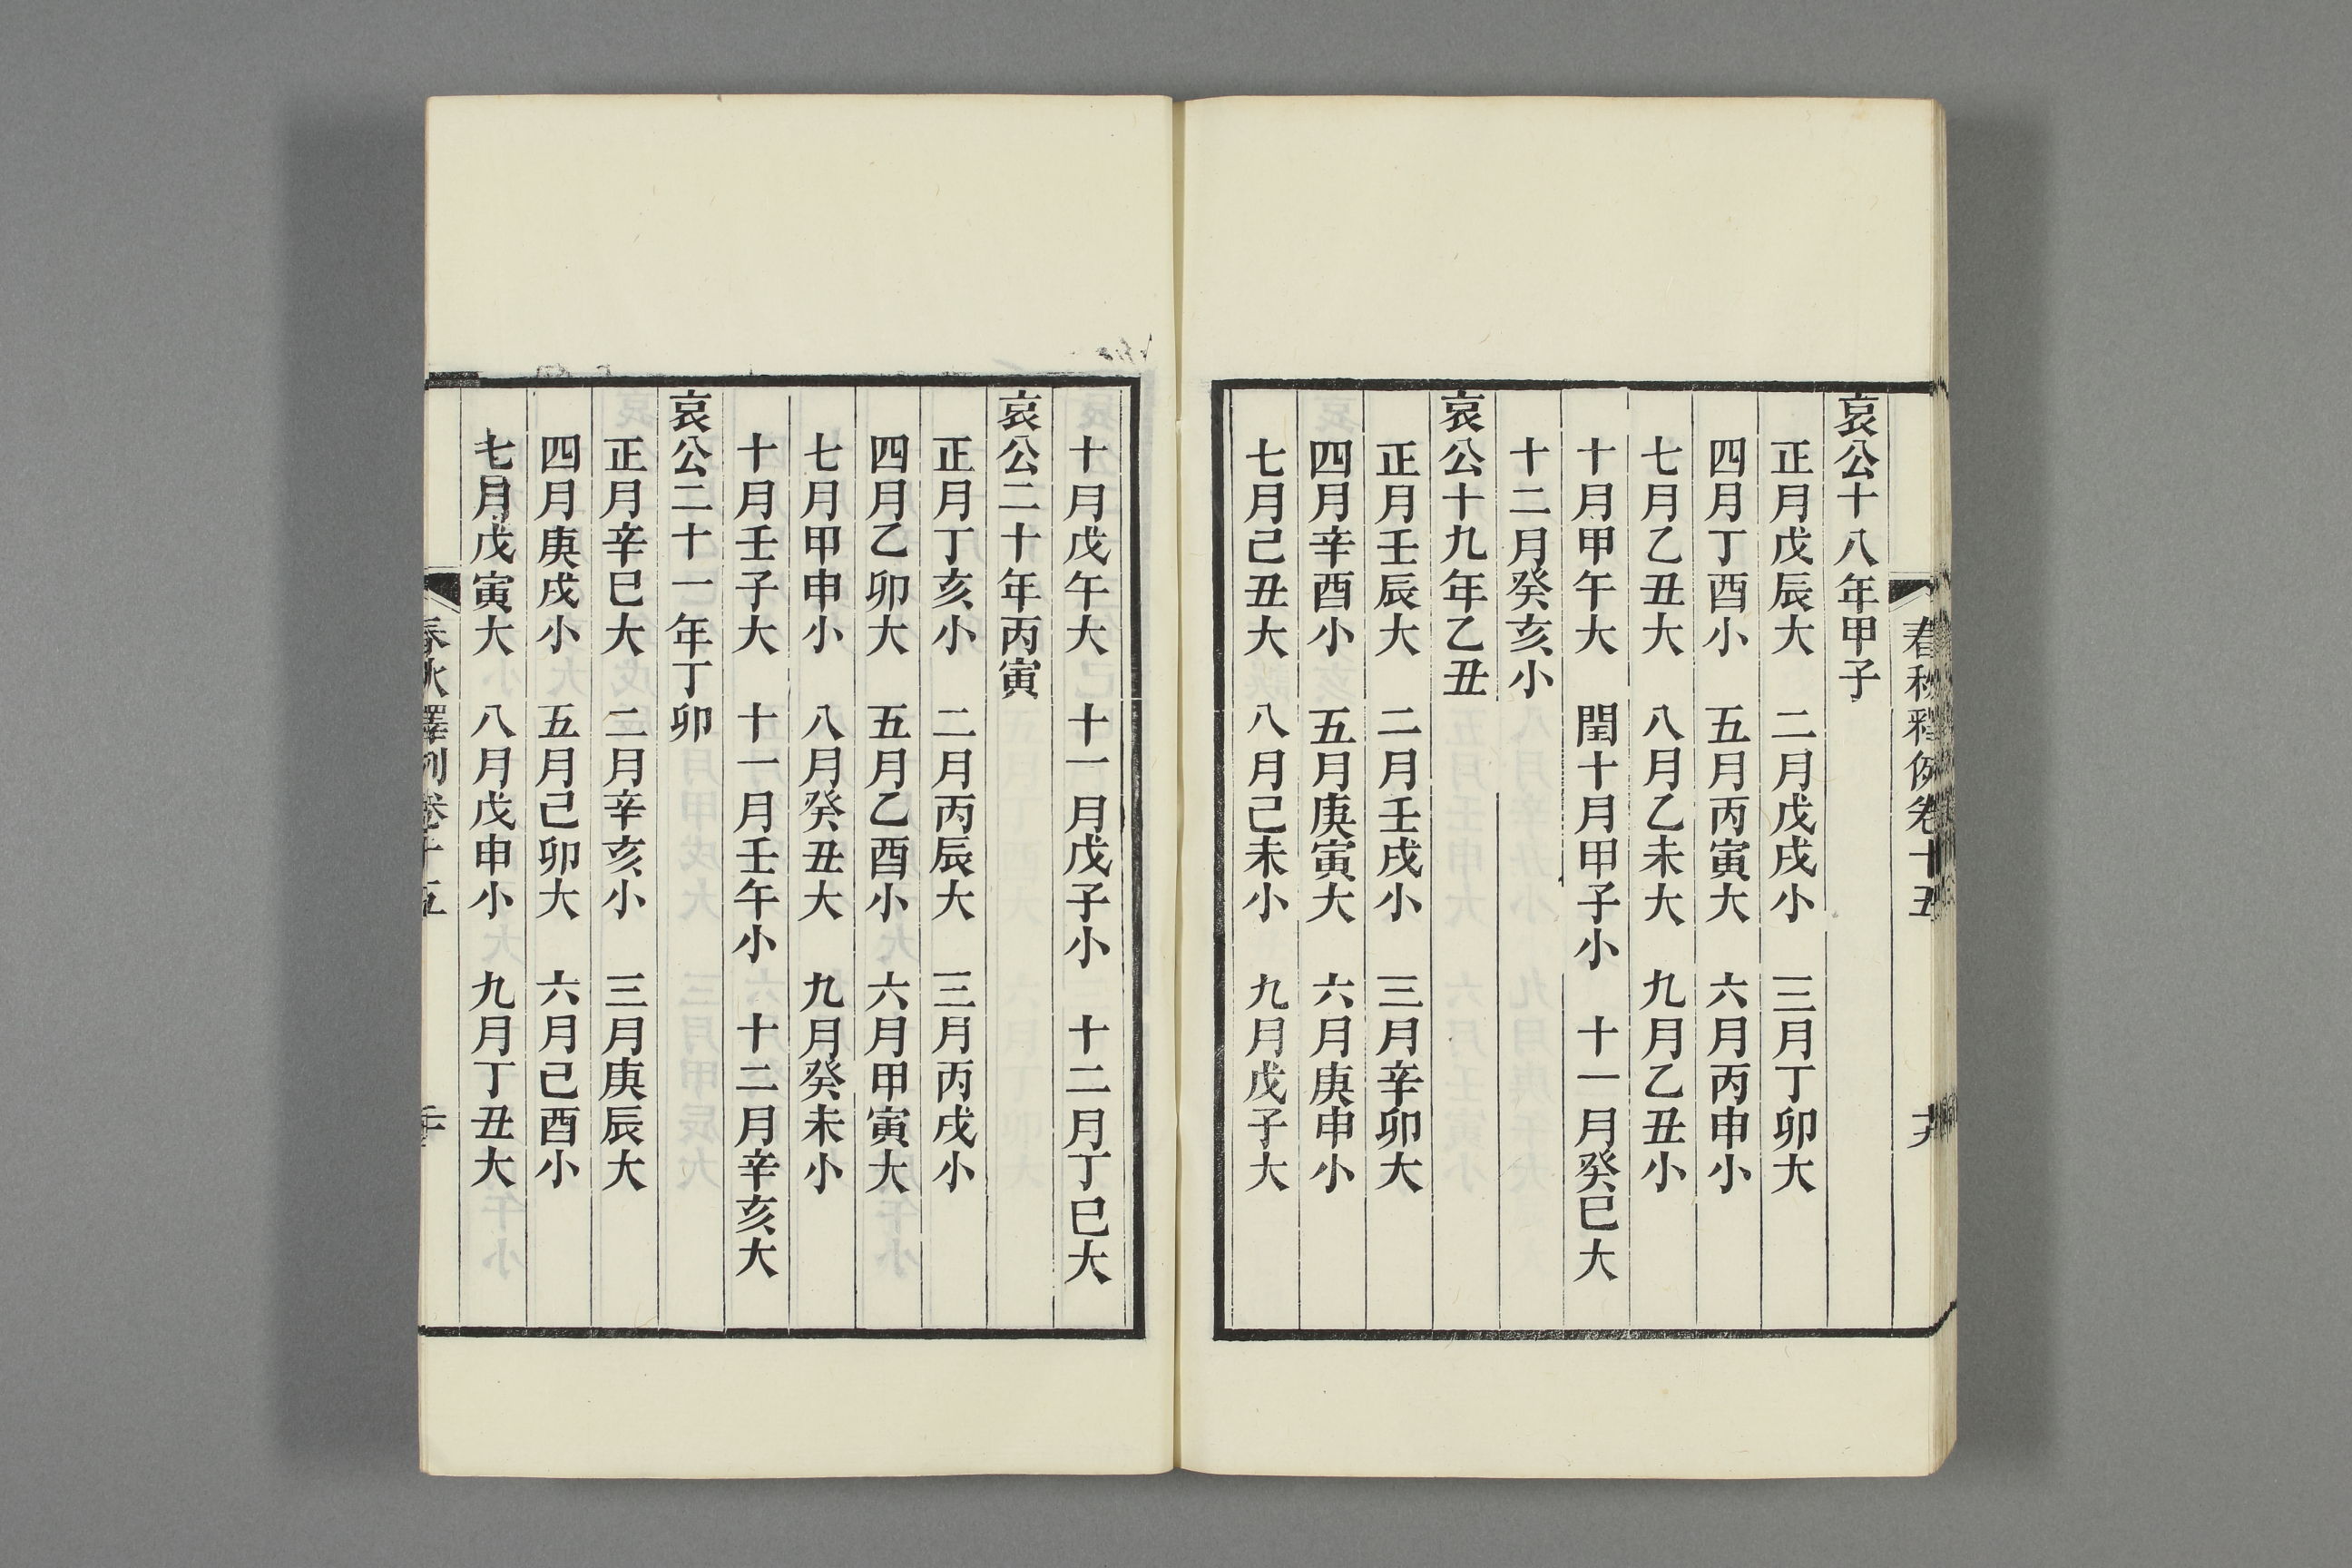 春秋釋例卷十五
哀公十八年甲子
正月戊辰大　二月戊戌小　三月丁卯大
四月丁酉小　五月丙寅大　六月丙申小
七月乙丑大　八月乙未大　九月乙丑小
十月甲午大　閏十月甲子小　十一月癸巳大
十二月癸亥小
哀公十九年乙丑
正月壬辰大　二月壬戌小　三月辛卯大
四月辛酉小　五月庚寅大　六月庚申小
七月己丑大　八月己未小　九月戊子大
十月戊午大　十一月戊子小　十二月丁巳大
哀公二十年丙寅
正月丁亥小　二月丙辰大　三月丙戌小
四月乙卯大　五月乙酉小　六月甲寅大
七月甲申小　八月癸丑大　九月癸未小
十月壬子大　十一月壬午小　十二月辛亥大
哀公二十一年丁卯
正月辛巳大　二月辛亥小　三月庚辰大
四月庚戌小　五月己卯大　六月己酉小
七月戊寅大　八月戊申小　九月丁丑大
春秋釋例卷十五